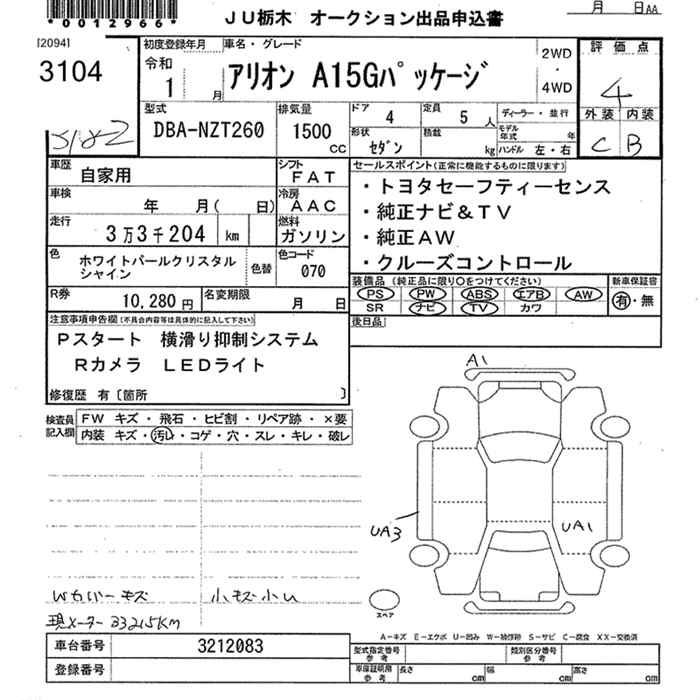 *0012966*
JU栃木 オークション出品申込書
月 日AA
[2094]
3104
初度登録年月
令和
1 月
車名・グレード
アリオン A15Gパッケージ
2WD
・
4WD
評価点
4
外装 内装
C B
型式
DBA-NZT260
排気量
1500 cc
ドア
4
定員
5 人
ディーラー・並行
形状
セダン
積載
kg
モデル年式 年
ハンドル 左・右
車歴
自家用
シフト
FAT
車検
年 月( 日)
冷房
AAC
走行
3万3千204 km
燃料
ガソリン
色
ホワイトパールクリスタル
シャイン
色替
色コード
070
R券
10,280円
名変期限
月 日
セールスポイント(正常に機能するものに限ります)
・トヨタセーフティーセンス
・純正ナビ&TV
・純正AW
・クルーズコントロール
装備品 (純正品に限り○をつけてください)
PS PW ABS エアB AW
SR ナビ TV カワ
新車保証書
有・無
後日品
注意事項申告欄(不具合内容等は具体的に記入して下さい)
Pスタート 横滑り抑制システム
Rカメラ LEDライト
修復歴 有〔箇所 〕
検査員
記入欄
FW キズ・飛石・ヒビ割・リペア跡・×要
内装 キズ・汚レ・コゲ・穴・スレ・キレ・破レ
A1
UA3
UA1
スペア
Wカバーキズ 小キズ小U
現メーター 33215KM
A-キズ E-エクボ U-凹み W-補修跡 S-サビ C-腐食 XX-交換済
車台番号
3212083
登録番号
型式指定番号
参考
類別区分番号
参考
車庫証明用
参考
長さ cm
幅 cm
高さ cm